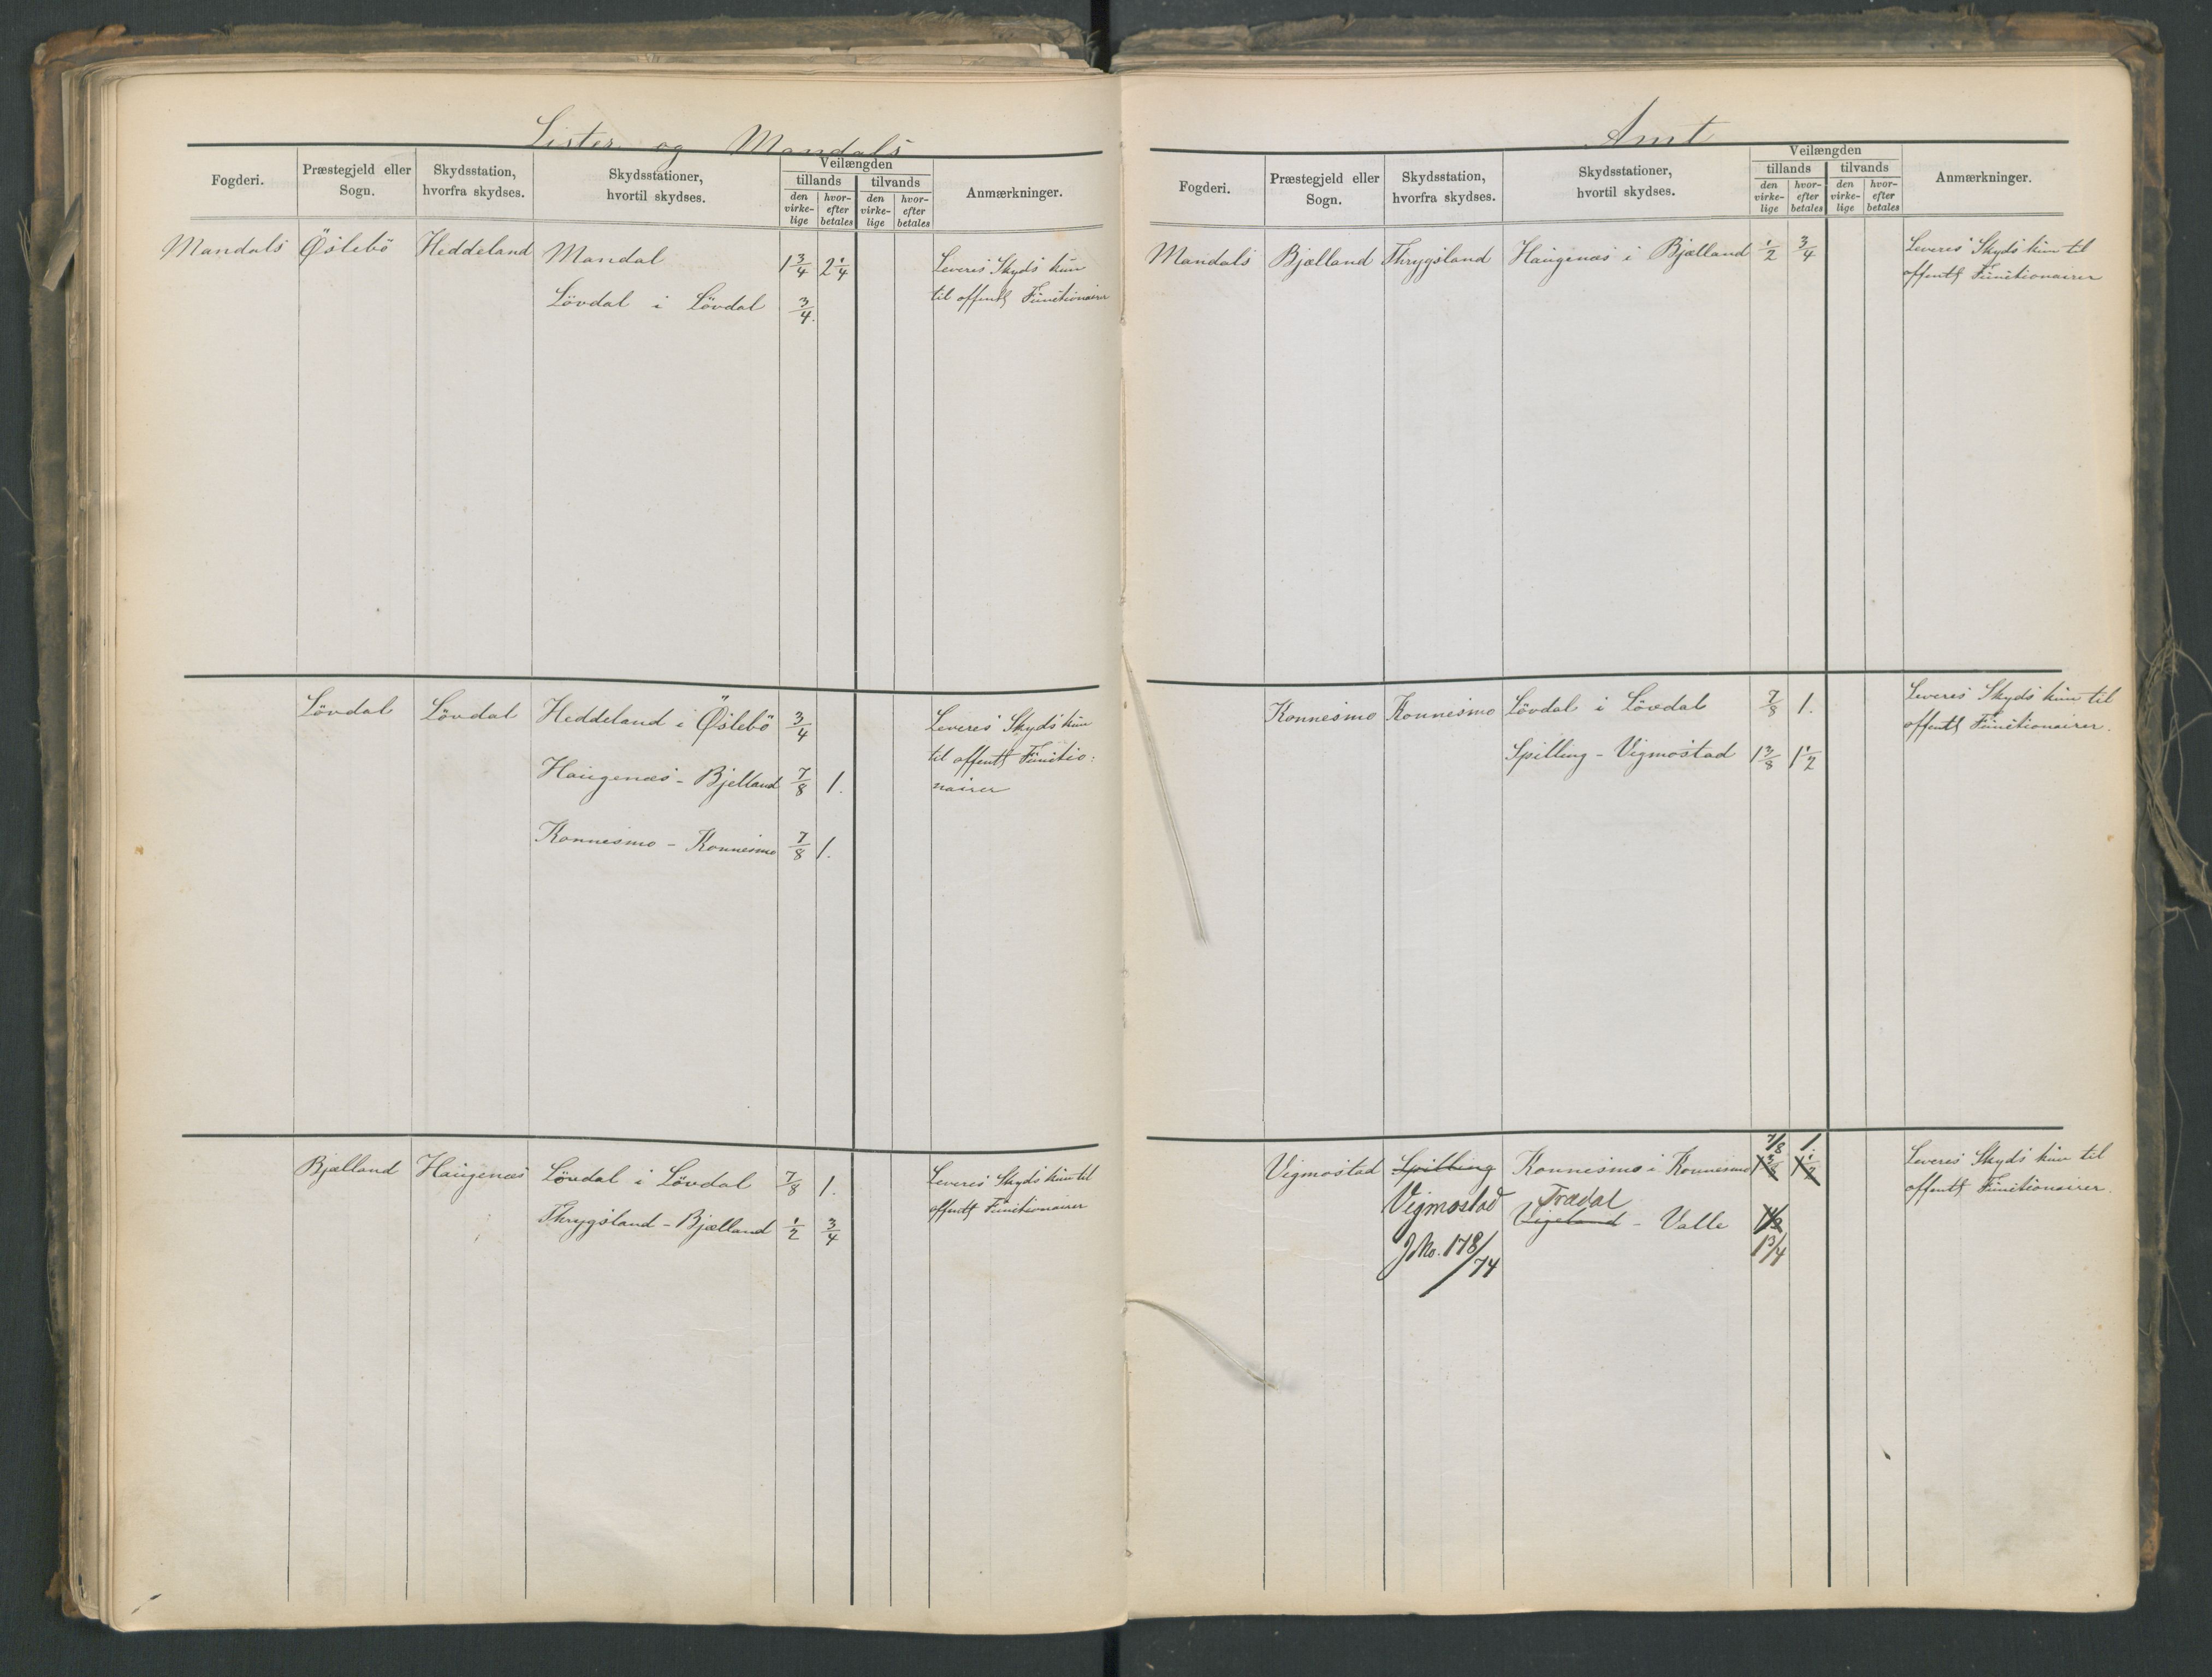 Lister og Mandals
Fogderi.
Præstegjeld eller
Sogn.
Skydsstation,
hvorfra skydses.
Skydsstationer,
hvortil skydses.
Veilængden
tillands
tilvands
den virke-lige
hvor-efter betales
den virke-lige
hvor-efter betales
Anmærkninger.
Mandals Öslebö Heddeland Mandal 1 3/4 2 1/4 Leveres Skyds kun
Lövdal i Lövdal 3/4. til offentl Functionairer
Lövdal Lövdal Heddeland i Öslebö 3/4 Leveres Skyds kun
til offentl Functio:
Haugenæs - Bjelland 7/8 1. nairer
Konnesmo - Konnesmo 7/8 1.
Bjælland Haugenæs Lövdal i Lövdal 7/8 1. Leveres Skyds kun til
Thrygsland - Bjælland 1/2 3/4 offentl Functionairer
Amt
Fogderi.
Præstegjeld eller
Sogn.
Skydsstation,
hvorfra skydses.
Skydsstationer,
hvortil skydses.
Veilængden
tillands
tilvands
den virke-lige
hvor-efter betales
den virke-lige
hvor-efter betales
Anmærkninger.
Mandals Bjælland Thrygsland Haugenæs i Bjælland 1/2 3/4 Leveres Skyds kun til
offentl Functionairer
Konnesmo Konnesmo Lövdal i Lövdal 7/8 1. Leveres Skyds kun til
offentl Functionairer.
Spilling - Vigmostad 1 3/8 1 1/2
7/8 1.
Vigmostad Spilling Konnesmo i Konnesmo 1 3/8 1 1/2 Leveres Skyds kun til
offentl Functionairer.
Vigmostad Trædal
Vigeland - Valle
J No. 178/74 1 3/4